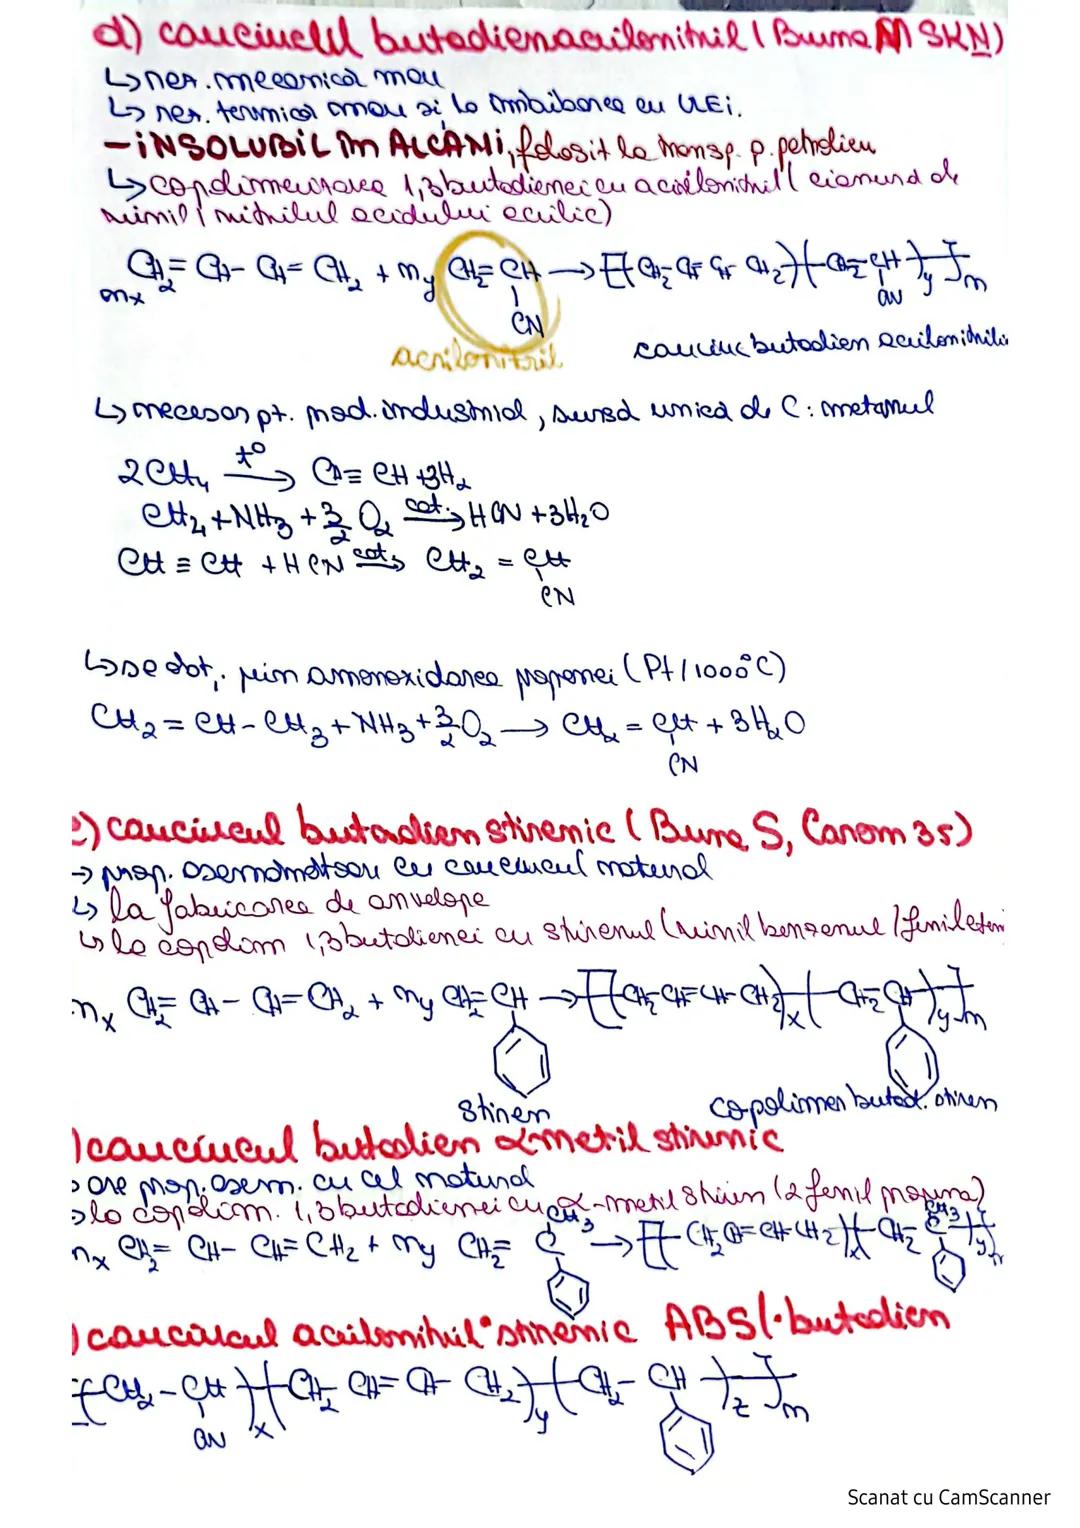 d) cauciucul butadienacrilonitril (Buna N SKN)
↳ rez. mecanică mai
↳ rez. termică mai și la îmbibarea cu ULEi.
- iNSOLUBiL în ALCANi, folosit la transp. p. petrolier
↳ copolimerizarea 1,3 butadienei cu acrilonitril (cianură de
vinil / nitrilul acidului acrilic)
nx CH2 = CH - CH = CH2 + ny CH2 = CH → [(CH2-CH=CH-CH2)x(CH2-CH)y]n
CN CN
acrilonitril cauciuc butadien acrilonitrilic
↳ necesar pt. prod. industrial, sursă unică de C: metanul
2CH4 t° → CH ≡ CH + 3H2
CH4 + NH3 + 3/2 O2 cat. → HCN + 3H2O
CH ≡ CH + HCN cat. → CH2 = CH
CN
↳ se obț. prin amonoxidarea propenei (Pt / 1000°C)
CH2 = CH - CH3 + NH3 + 3/2 O2 → CH2 = CH + 3H2O
CN
e) cauciucul butadien stirenic (Buna S, Carom 35)
→ prop. asemănătoare cu cauciucul natural
↳ la fabricarea de anvelope
↳ la copolim 1,3 butadienei cu stirenul (vinil benzenul / feniletem
nx CH2 = CH - CH = CH2 + ny CH2 = CH → [(CH2-CH=CH-CH2)x(CH2-CH)y]n
stiren copolimer butad. stiren
) cauciucul butadien α metil stirenic
are prop. asem. cu cel natural
la copolim. 1,3 butadienei cu α-metil stiren (2 fenil propena)
CH3 CH3
nx CH2 = CH - CH = CH2 + ny CH2 = C → [(CH2 CH=CH-CH2)x(CH2-C)y]n
) cauciucul acrilonitril stirenic ABS (butadien
[(CH2 - CH)x(CH2 CH = CH - CH2)y(CH2 - CH)z]n
CN
Scanat cu CamScanner